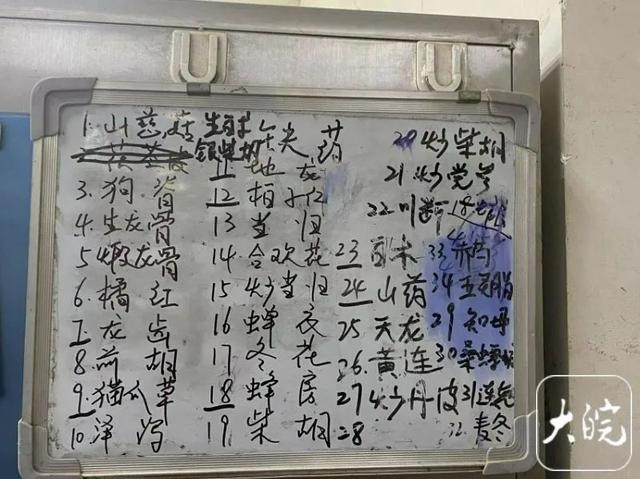 1.山慈菇
3.狗脊
4.生龙骨
5煅龙骨
6.橘红
7.龙齿
8前胡
9.猫爪草
10.泽泻
生
银柴胡
11地龙
12柏子仁
13当归
14合欢花
15炒当归
16蝉衣
17冬花
18蜂房
19柴胡
20炒柴胡
21炒党参
22川断
23
24山药
25天龙
26.黄连
27炒丹皮
28
33赤芍
34
29知母
30桑螵蛸
31连
32麦冬
大皖